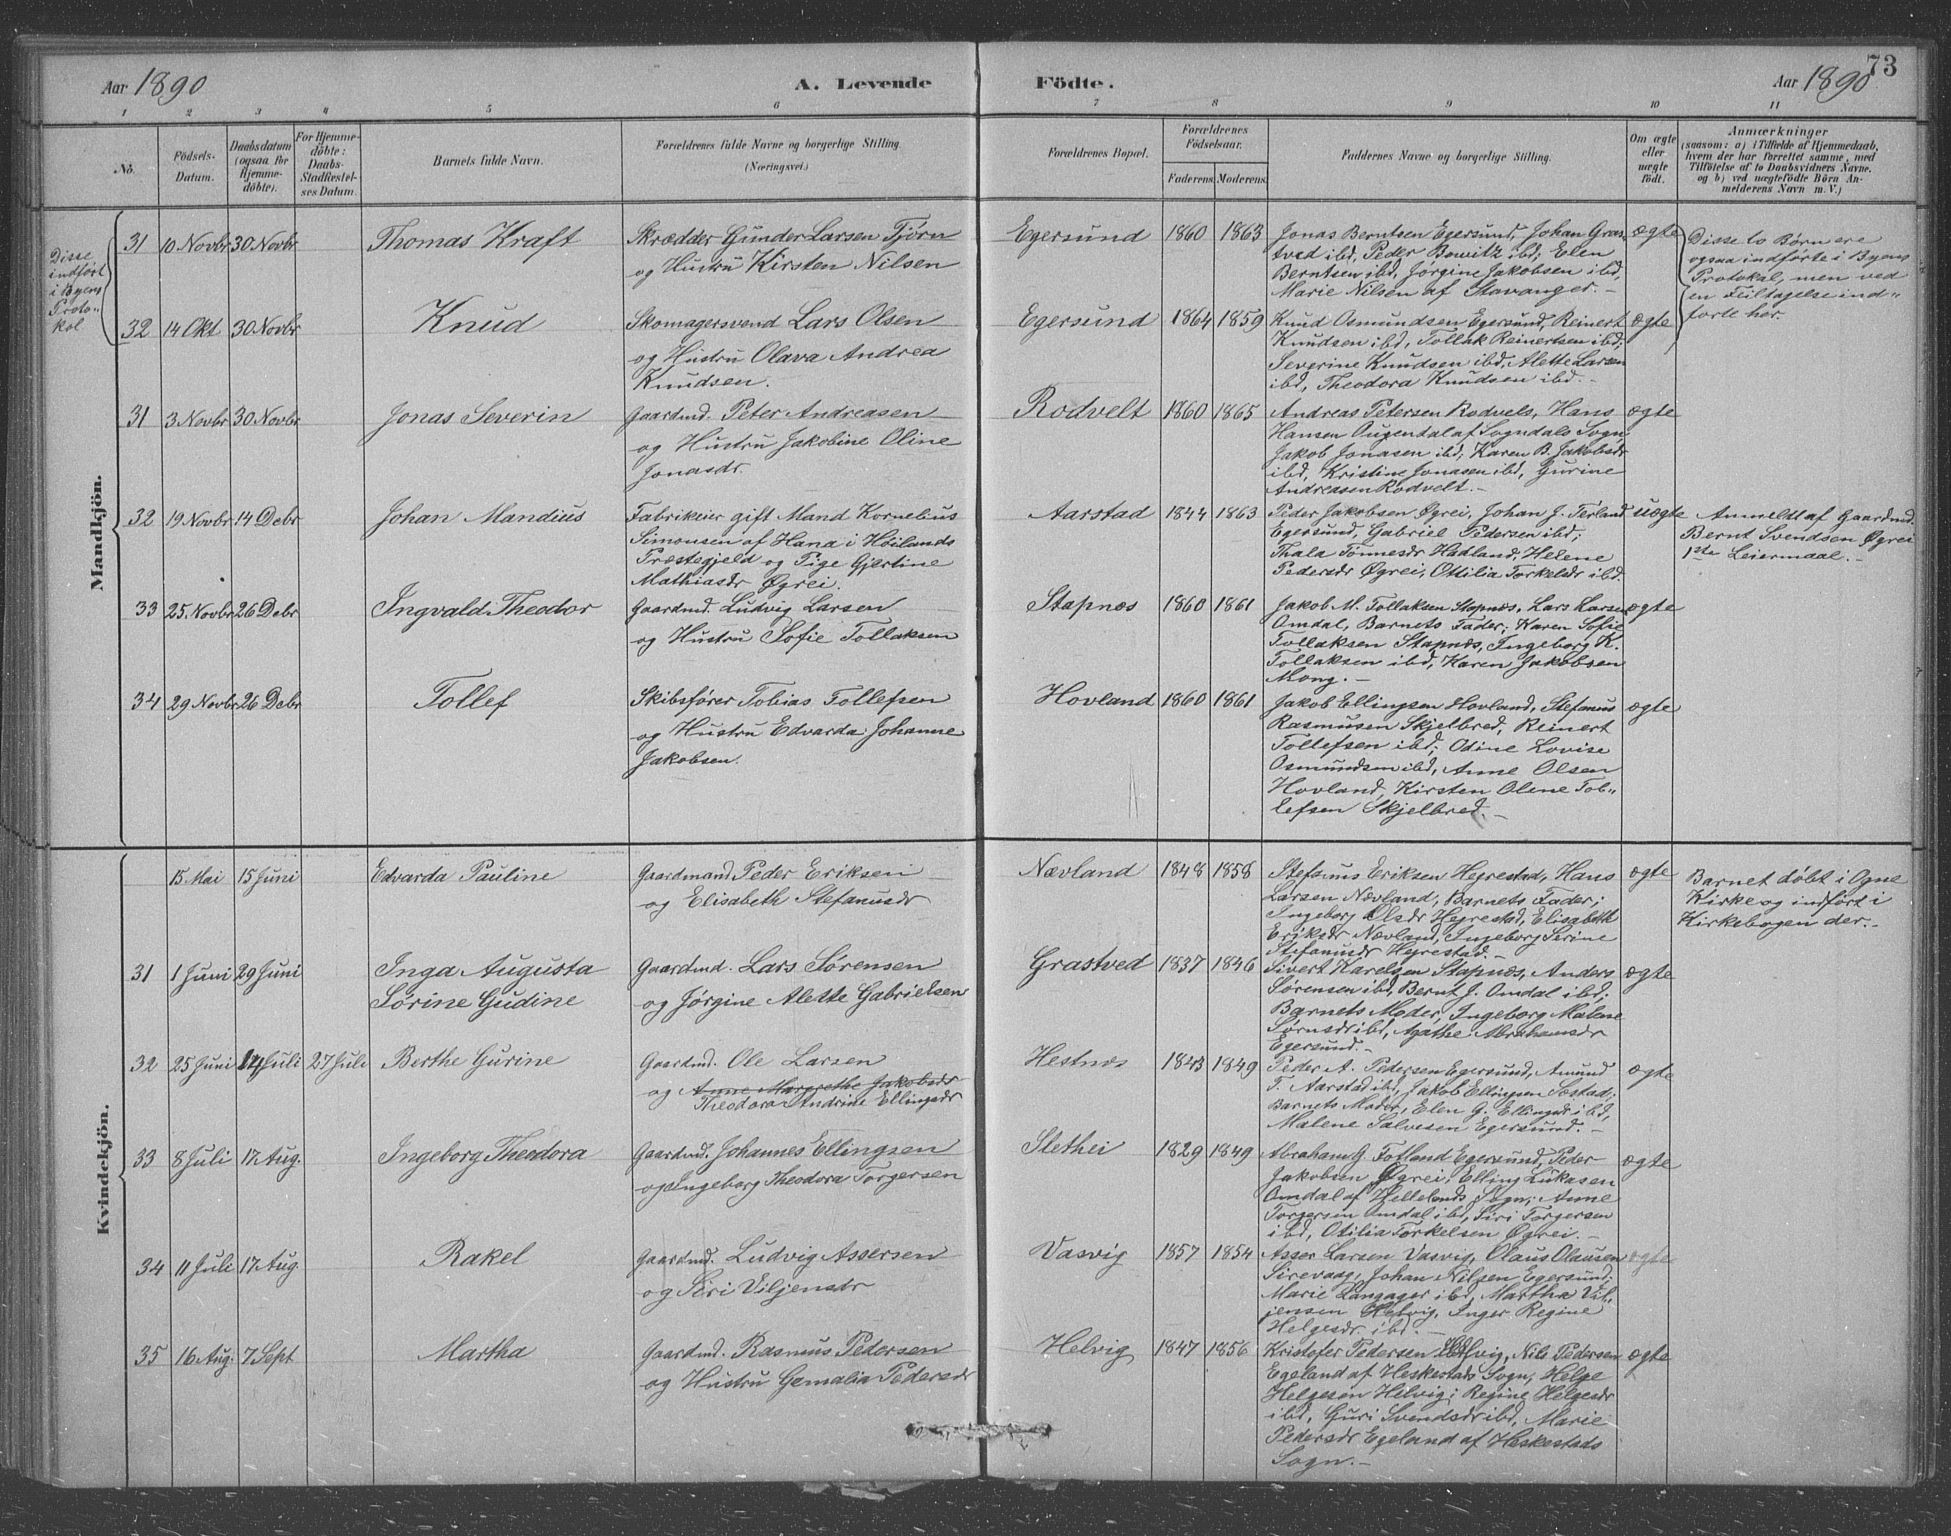 73
Aar 1890
A. Levende
Födte.
Aar 1890
1 2 3 4 5 6 7 8 9 10 11
No.
Födsels-
Datum.
Daabsdatum
(ogsaa for
Hjemme-
döbte).
For Hjemme-
döbte:
Daabs-
Stadfæstel-
ses Datum.
Barnets fulde Navn.
Forældrenes fulde Navne og borgerlige Stilling.
(Næringsvei.)
Forældrenes Bopæl.
Forældrenes
Födselsaar.
Faderens. Moderens.
Faddernes Navne og borgerlige Stilling.
Om ægte
eller
uægte
födt.
Anmærkninger
(saasom: a) i Tilfælde af Hjemmedaab,
hvem der har forrettet samme, med
Tilföielse af to Daabsvidners Navne.
og b) ved uægtefödte Börn An-
melderens Navn m. V.)
Mandkjön.
Disse
indført
i Byens
Proto-
kol
31 10 Novbr 30 Novbr Thomas Kraft
Skrædder Gunder Larsen Tjörn
og Hustru Kirsten Nilsen
Egersund 1860 1863
Jonas Berntsen Egersund, Johan Gras-
tved ibd, Peder Bowitz ibd; Elen
Berntsen ibd, Jørgine Jakobsen ibd,
Marie Nilsen af Stavanger.-
ægte
Disse to Børn ere
ogsaa indførte i Byens
Protokol, men ved
en Feiltagelse ind-
førte her.
32 14 Okt 30 Novbr Knud
Skomagersvend Lars Olsen
og Hustru Olava Andrea
Knudsen.
Egersund 1864 1859
Knud Osmundsen Egersund, Reinert
Knudsen ibd, Tollak Reinertsen ibd;
Severine Knudsen ibd, Alette Larsen
ibd, Theodora Knudsen ibd.-
ægte
31 3 Novbr 30 Novbr Jonas Severin
Gaardmd. Peter Andreasen
og Hustru Jakobine Oline
Jonasdr.
Rodvelt 1860 1865
Andreas Petersen Rodvelt, Hans
Hansen Ougendal af Sogndals Sogn,
Jakob Jonasen ibd; Karen B. Jakobsdr
ibd, Kristine Jonasen ibd, Gurine
Andreasen Rodvelt.-
ægte
32 19 Novbr 14 Debr Johan Mandius
Fabrikeier gift Mand Kornelius
Simonsen af Hana i Høilands
Præstegjeld og Pige Gjertine
Mathiasdr Øgrei.
Aarstad 1844 1863
Peder Jakobsen Øgrei, Johan J. Terland
Egersund, Gabriel Pedersen ibd;
Thala Tönnesdr Hadland, Helene
Pedersdr Øgrei, Ottilia Torkelsdr ibd.
uægte
Anmeldt af Gaardmd.
Bernt Svendsen Øgrei
1ste Leiermaal.-
33 25 Novbr 26 Debr Ingvald Theodor
Gaardmd. Ludvig Larsen
og Hustru Sofie Tollaksen
Stapnæs 1860 1861
Jakob M. Tollaksen Stapnæs, Lars Larsen
Omdal, Barnets Fader; Karen Sofie
Tollaksen Stapnæs, Ingeborg K.
Tollaksen ibd, Karen Jakobsen
Mong.-
ægte
34 29 Novbr 26 Debr Tollef
Skibsfører Tobias Tollefsen
og Hustru Edvarda Johanne
Jakobsen.
Hovland 1860 1861
Jakob Ellingsen Hovland, Stefanus
Rasmusen Skjelbred, Reinert
Tollefsen ibd; Odine Lovise
Osmundsen ibd, Anne Olsen
Hovland, Kirsten Olene Tol-
lefsen Skjelbred.-
ægte
Kvindekjön.
15 Mai 15 Juni Edvarda Pauline
Gaardmand Peder Eriksen
og Elisabeth Stefanusdr
Nævland 1848 1858
Stefanus Eriksen Hejrestad, Hans
Larsen Nævland, Barnets Fader;
Ingeborg Olsdr Hejrestad, Elisabeth
Eriksdr Nævland, Ingeborg Serine
Stefanusdr Hejrestad.-
ægte
Barnet døbt i Ogne
Kirke og indført i
Kirkebogen der.-
31 1 Juni 29 Juni Inga Augusta
Sørine Gudine
Gaardmd. Lars Sørensen
og Jørgine Alette Gabrielsen
Grastved 1837 1846
Sivert Karelsen Stapnæs, Anders
Sørensen ibd, Bernt J. Omdal ibd;
Barnets Moder, Ingeborg Malene
Sørnsdr ibd, Agathe Abrahamsdr
Egersund.-
ægte
32 25 Juni 14 Juli 27 Juli Berthe Gurine
Gaardmd. Ole Larsen
og Anne Margrethe Jakobsdr
Theodora Andrine Ellingsdr
Hestnæs 1843 1849
Peder A. Pedersen Egersund, Amund
T. Aarstad ibd, Jakob Ellingsen Sostad;
Barnets Moder, Elen G. Ellingsdr ibd,
Malene Salvesen Egersund.-
ægte
33 8 Juli 17 Aug. Ingeborg Theodora
Gaardmd. Johannes Ellingsen
og Ingeborg Theodora Torgersen
Slethei 1829 1849
Abraham G. Fotland Egersund, Peder
Jakobsen Øgrei, Elling Lukasen
Omdal af Hellelands Sogn; Anne
Torgersen Omdal ibd, Siri Torgersen
ibd, Otilia Torkelsen Øgrei.-
ægte
34 11 Juli 17 Aug. Rakel
Gaardmd. Ludvig Assersen
og Siri Viljensdr
Vasvig 1857 1854
Asser Larsen Vasvig, Olaus Olausen
Sirevaag, Johan Nilsen Egersund;
Marie Langager ibd, Martha Vil-
jensen Helvig, Inger Regine
Helgesdr ibd.-
ægte
35 16 Aug. 7 Sept Martha
Gaardmd. Rasmus Pedersen
og Hustru Gemalia Pedersdr
Helvig 1847 1856
Kristofer Pedersen Helvig, Nils Pedersen
Egeland af Heskestads Sogn, Helge
Helgesen Helvig; Regine Helgesdr
ibd, Guri Svendsdr ibd, Marie
Pedersdr Egeland af Heskestads
Sogn.-
ægte